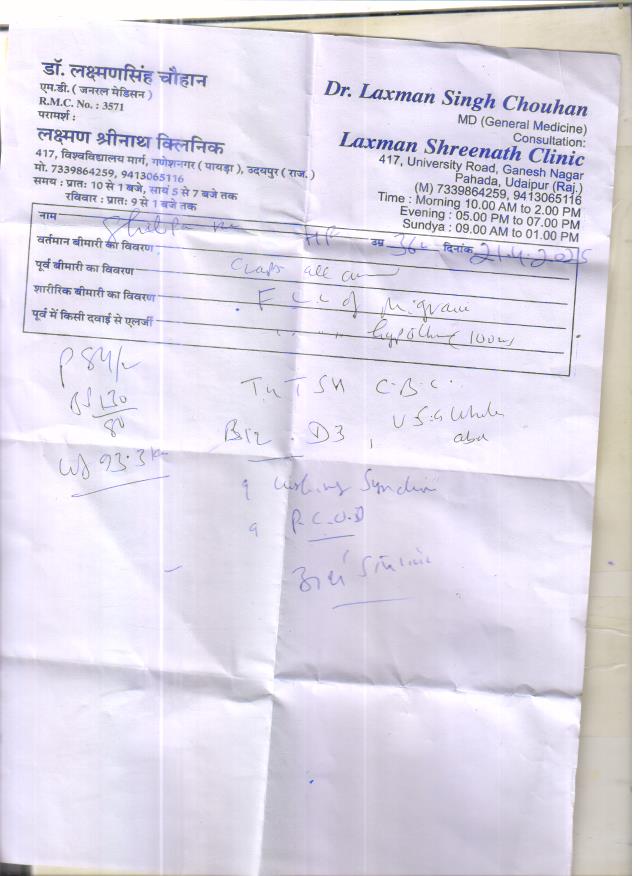 डॉ. लक्ष्मणसिंह चौहान
एम.डी. ( जनरल मेडिसन )
R.M.C. No. : 3571
परामर्श :
लक्ष्मण श्रीनाथ क्लिनिक
417, विश्वविद्यालय मार्ग, गणेशनगर ( पायड़ा ), उदयपुर ( राज. )
मो. 7339864259, 9413065116
समय : प्रातः 10 से 1 बजे, सायं 5 से 7 बजे तक
रविवार : प्रातः 9 से 1 बजे तक
Dr. Laxman Singh Chouhan
MD (General Medicine)
Consultation:
Laxman Shreenath Clinic
417, University Road, Ganesh Nagar
Pahada, Udaipur (Raj.)
(M) 7339864259, 9413065116
Time : Morning 10.00 AM to 2.00 PM
Evening : 05.00 PM to 07.00 PM
Sundya : 09.00 AM to 01.00 PM
नाम उम्र 36 दिनांक 21.4.2025
वर्तमान बीमारी का विवरण
पूर्व बीमारी का विवरण
शारीरिक बीमारी का विवरण of Migraine
पूर्व में किसी दवाई से एलर्जी
P 84/
130
80
93.3
TSH C.B.C.
B12 . D3, USG Whole
abd
P.C.O.D